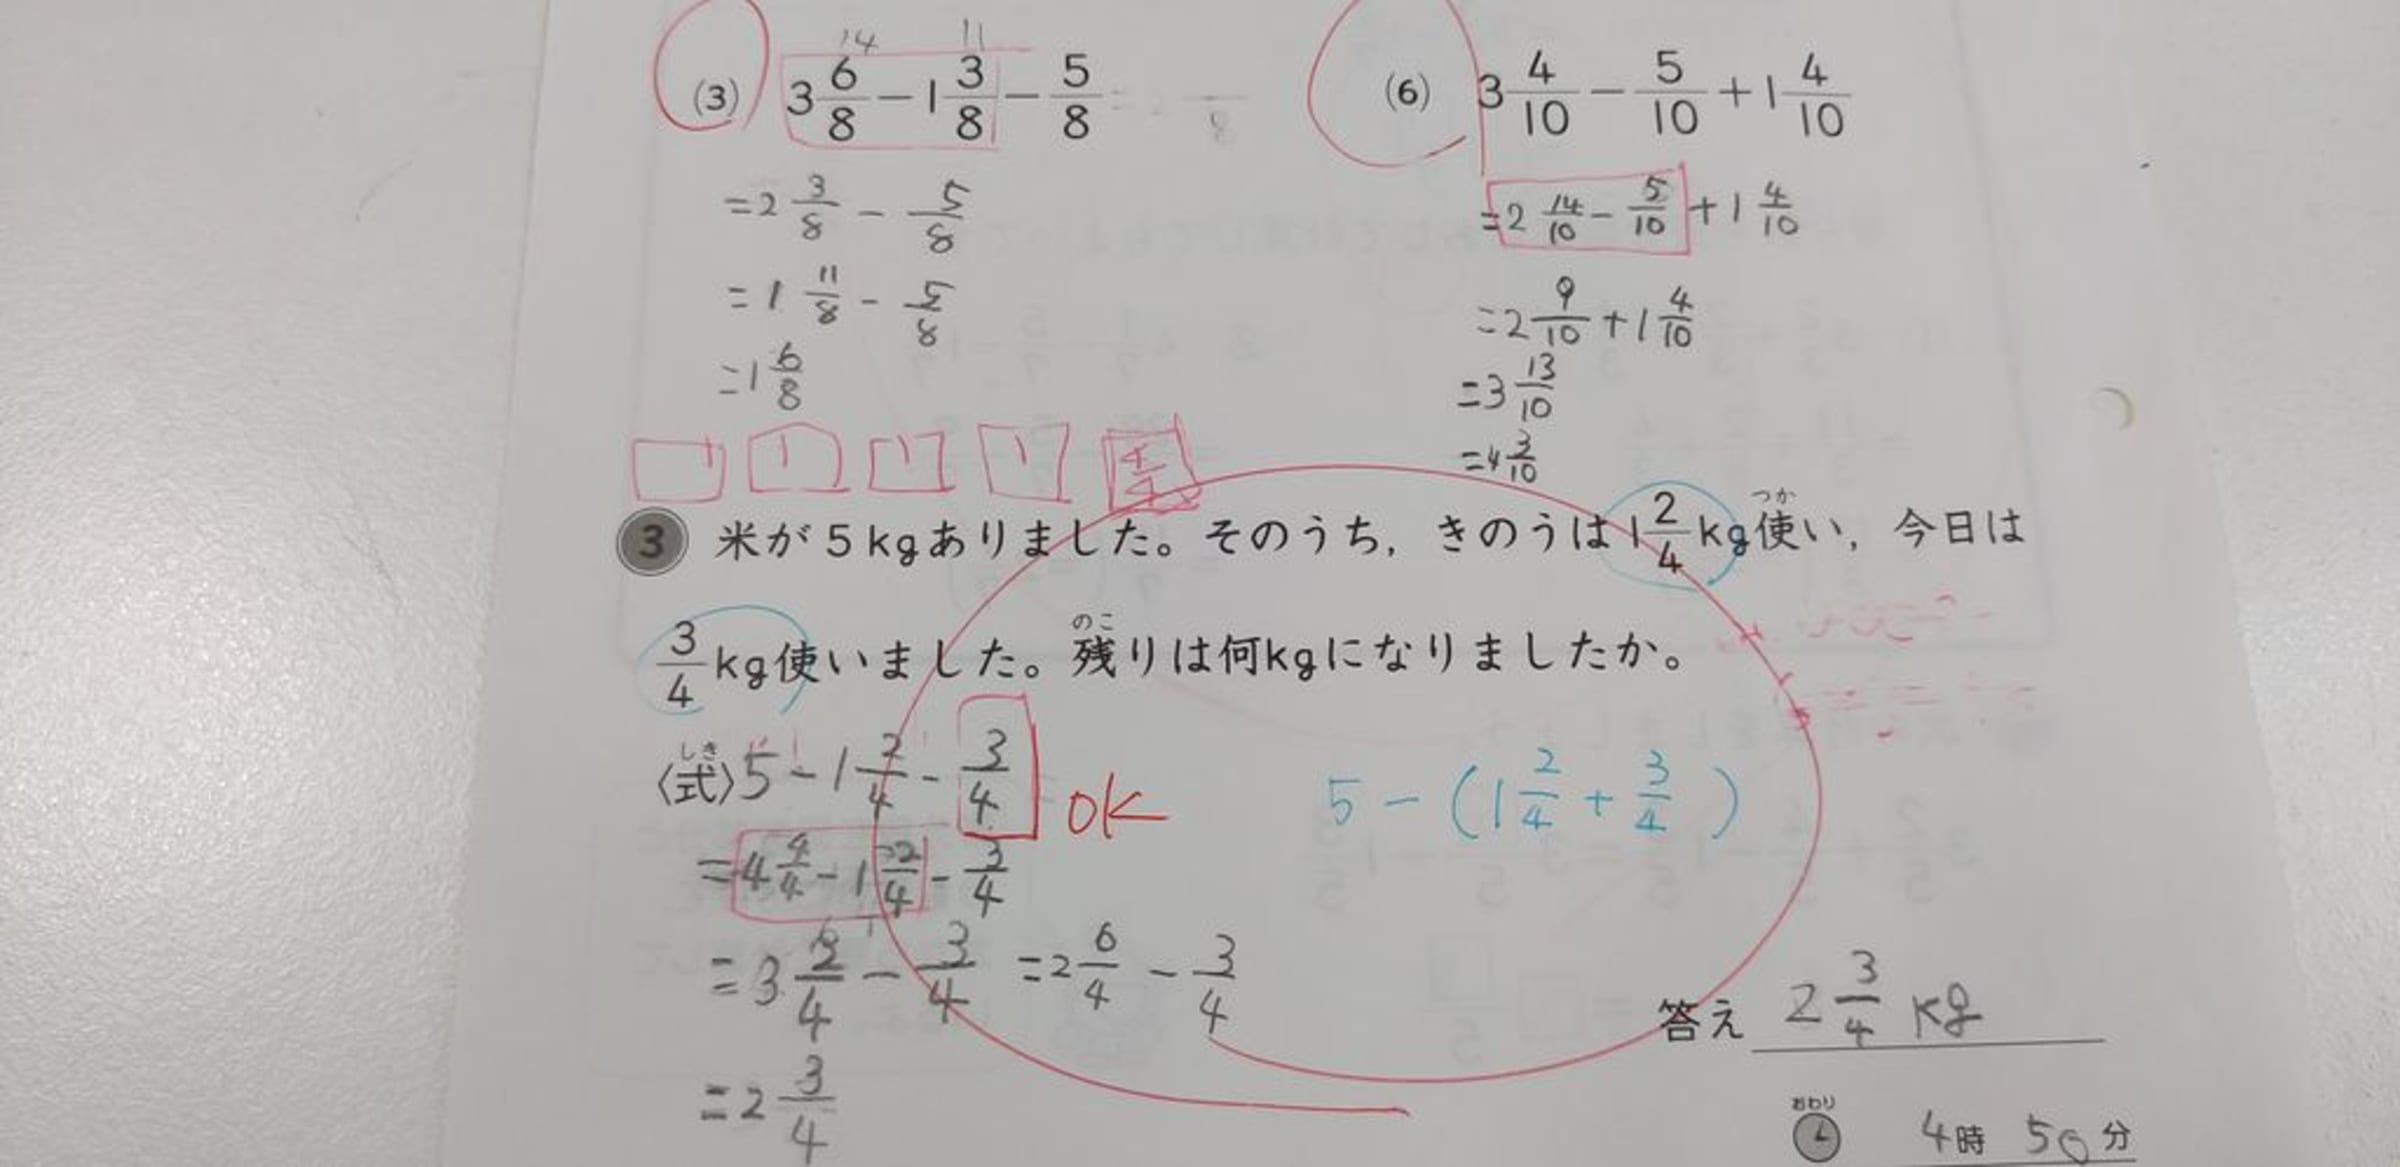 (3) 3 6/8 − 1 3/8 − 5/8
14 11
= 2 3/8 − 5/8
= 1 11/8 − 5/8
= 1 6/8
(6) 3 4/10 − 5/10 + 1 4/10
= 2 14/10 − 5/10 + 1 4/10
= 2 9/10 + 1 4/10
= 3 13/10
= 4 3/10
1 1 1 1 4/4
3 米が5kgありました。そのうち，きのうは1 2/4kg使い，今日は
つか
3/4kg使いました。残りは何kgになりましたか。
のこ
〈式〉5 − 1 2/4 − 3/4 OK
しき
5 − (1 2/4 + 3/4)
= 4 4/4 − 1 2/4 − 3/4
= 3 2/4 − 3/4 = 2 6/4 − 3/4
= 2 3/4
答え 2 3/4 kg
おわり
4時 50分